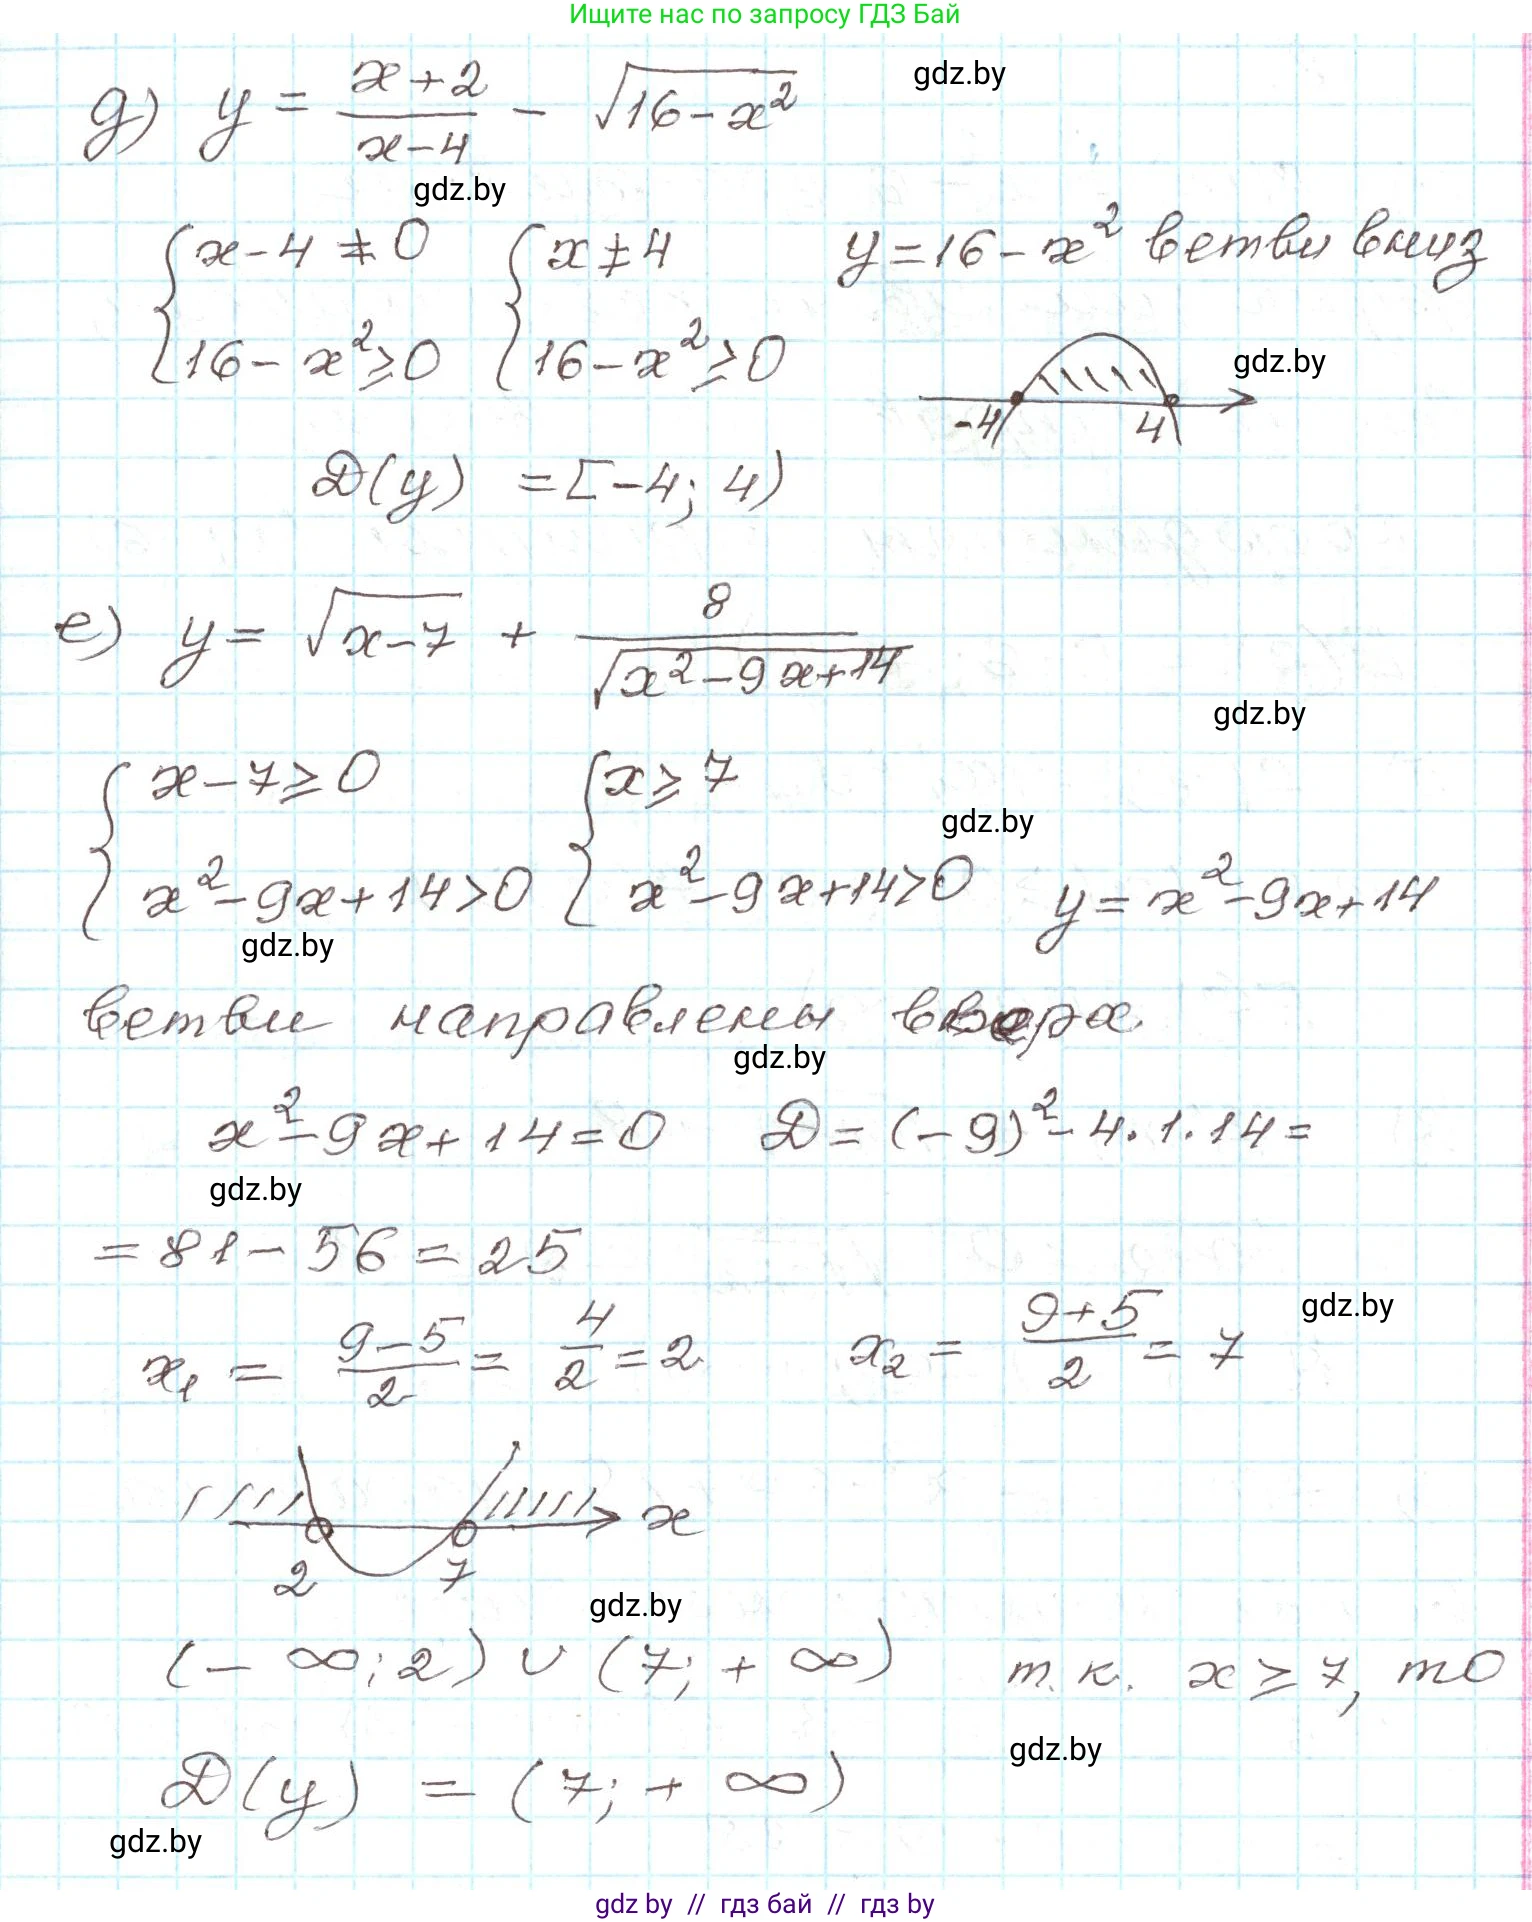 Ищите нас по запросу ГДЗ Бай
д) y = (x+2)/(x-4) - √(16-x²)
gdz.by
gdz.by
{ x-4 ≠ 0 { x ≠ 4 y = 16 - x² ветви вниз
{ 16 - x² ≥ 0 { 16 - x² ≥ 0
gdz.by
-4 4
D(y) = [-4; 4)
е) y = √(x-7) + 8/√(x²-9x+14)
gdz.by
{ x-7 ≥ 0 { x ≥ 7
gdz.by
{ x²-9x+14>0 { x²-9x+14>0 y = x²-9x+14
gdz.by
ветви направлены вверх
gdz.by
x²-9x+14=0 D = (-9)²-4·1·14=
gdz.by
= 81 - 56 = 25
gdz.by
x₁ = (9-5)/2 = 4/2 = 2 x₂ = (9+5)/2 = 7
x
2 7
gdz.by
(-∞; 2) ∪ (7; +∞) т.к. x ≥ 7, то
gdz.by
D(y) = (7; +∞)
gdz.by
gdz by // гдз бай // гдз by